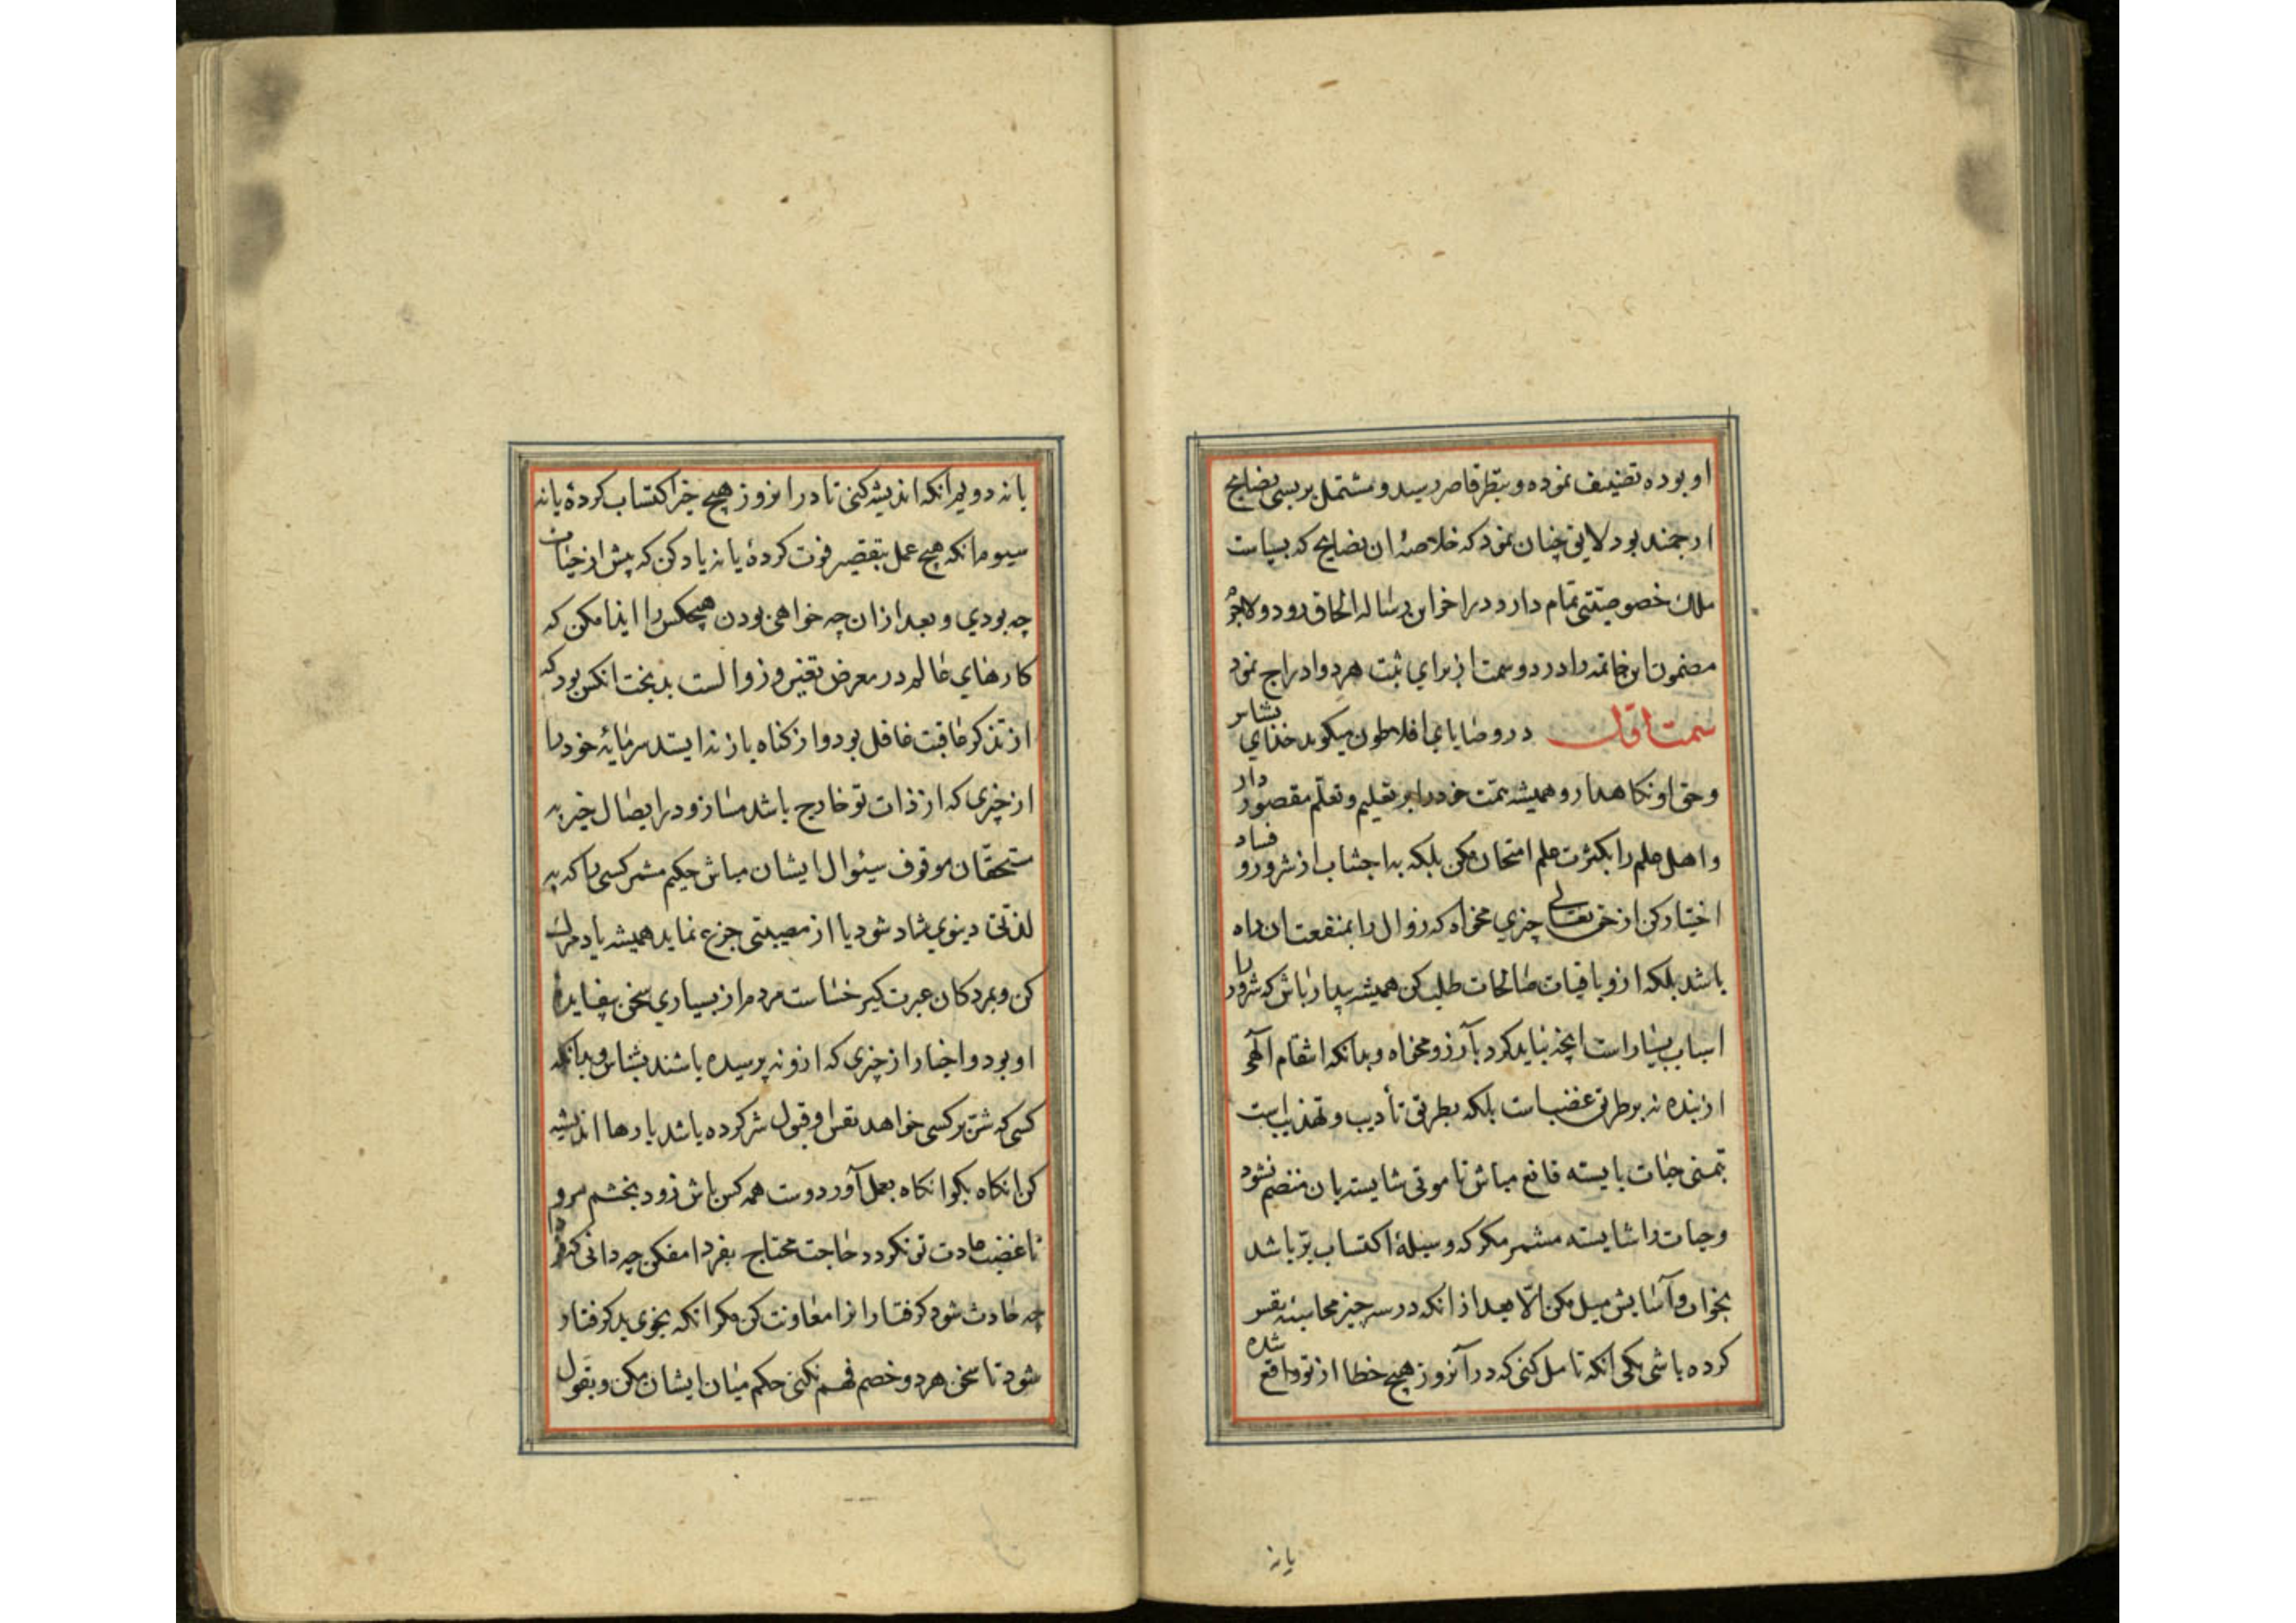 او بوده تصنیف نموده و بنظر قاصر رسید و مشتمل بر بسی نصایح
ارجمند بود لایق چنان نمود که خلاصهٔ ان نصایح که بسیاست
ملک خصوصیتی تمام دارد در اخر این رساله الحاق رود و لاجرم
مضمون این خاتمه را در دو سمت از برای ثبت هر دو ادراج نمود
سمت اوّل در وصایای افلاطون میگوید خدای بشناس
و حق او نکاهدار و همیشه همّت خود را بر تعلیم و تعلّم مقصور دار
و اهل علم را بکثرت علم امتحان مکن بلکه به اجتناب از شر و فساد
اختیار کن از حق تعالی چیزی مخواه که زوال را بمنفعت ان راه
باشد بلکه ازو باقیات صالحات طلب کن همیشه بیدار باش که شرور را
اسباب بسیار است انچه نباید کرد بآرزو مخواه و بدانکه انتقام الهی
از بنده نه بر طریق غضب است بلکه بطریق تأدیب و تهذیب است
بتمنی حیات بایسته قانع مباش تا موتی شایسته بان منضم نشود
و حیات را شایسته مشمر مکر که وسیلهٔ اکتساب برّ باشد
بخواب و آسایش میل مکن الّا بعد از انکه در سه چیز محاسبهٔ نفس
کرده باشی یکی انکه تامل کنی که در آنروز هیچ خطا از تو واقع شده
یا نه
یا نه دویم انکه اندیشه کنی تا در انروز هیچ خیر اکتساب کردهٔ یا نه
سیوم انکه هیچ عمل بتقصیر فوت کردهٔ یا نه یاد کن که پیش از حیات
چه بودی و بعد از ان چه خواهی بودن هیچکس را ایذا مکن که
کارهای عالم در معرض تغیر و زوالست بدبخت انکس بود که
از تذکر عاقبت غافل بود و از کناه باز نه ایستد سرمایهٔ خود را
از چیزی که از ذات تو خارج باشد مساز و در ایصال خیر به
مستحقان موقوف سیئوال ایشان مباش حکیم مشمر کسی را که به
لذتی دینوی شاد شود یا از مصیبتی جزع نماید همیشه یاد مرک
کن و بمردکان عبرت کیر خساست مردم از بسیاری سخن بیفایدهٔ
او بود و اخبار از چیزی که ازو نه پرسیده باشند بشناس و بدانکه
کسی که شر بر کسی خواهد نفس او قبول شر کرده باشد بارها اندیشه
کن انکاه بکو انکاه بعمل آور دوست همه کس باش زود بخشم مرو
تا غضب عادت تو نکردد حاجت محتاج بفردا مفکن چه دانی که فردا
چه حادث شود کرفتاران را معاونت کن مکر انکه بخوی بد کرفتار
شود تا سخن هر دو خصم فهم نکنی حکم میان ایشان مکن و بقول